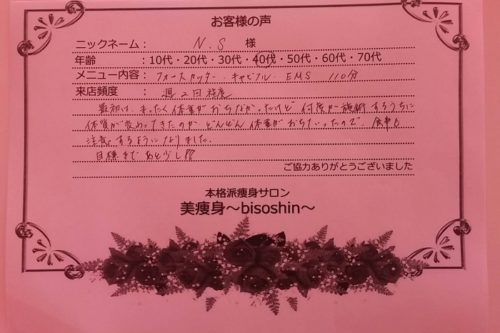 お客様の声
ニックネーム： N.S 様
年齢 ： 10代・20代・30代・40代・50代・60代・70代
メニュー内容： フォースカッター キャビフル EMS 110分
来店頻度 ： 週2回程度
最初は、まったく体重がおちなかったけど 何度か施術するうちに
体質が変わってきたのか どんどん体重がおちていったので、食事も
注意するようになりました。
目標まであと少し!!
ご協力ありがとうございました
本格派痩身サロン
美痩身～bisoshin～